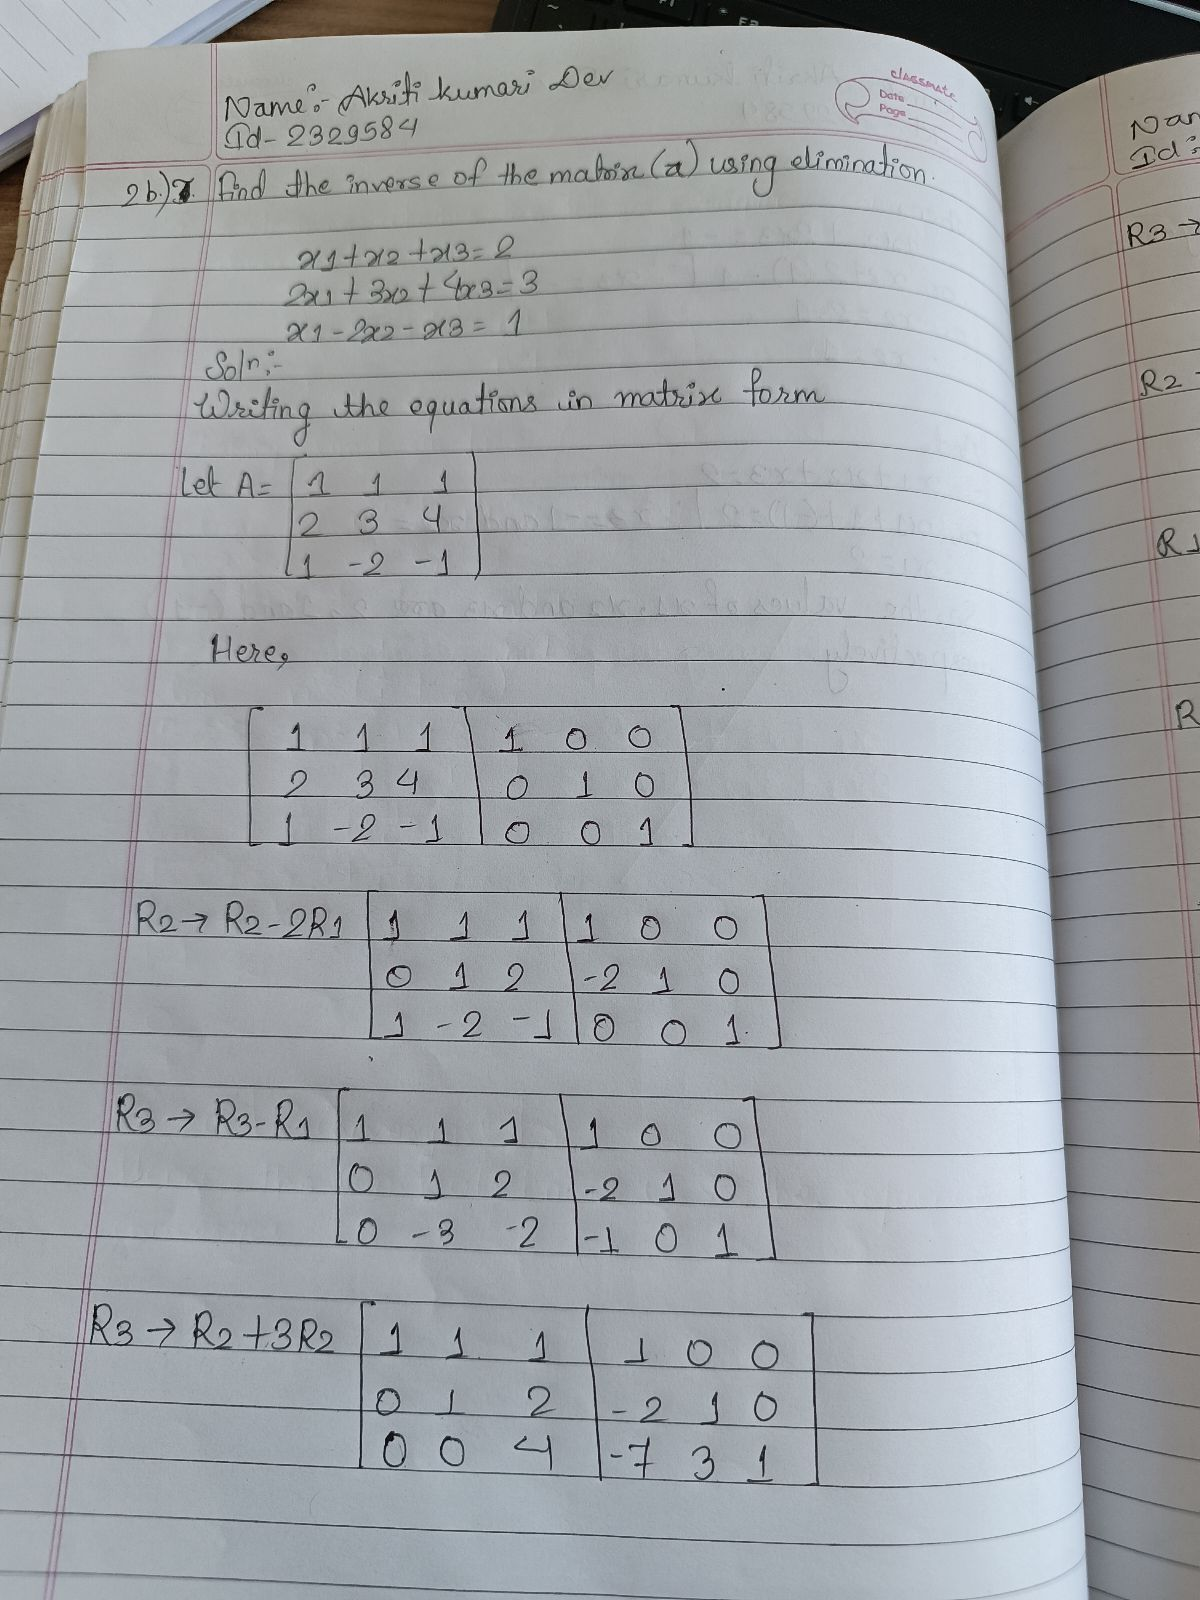 Name:- Akriti kumari Dev
Id- 2329584
classmate
Date
Page
2b.) find the inverse of the matrix (a) using elimination.
x1+x2+x3=2
2x1+3x2+4x3=3
x1-2x2-x3=1
Soln:-
Writing the equations in matrix form
Let A= [ 1 1 1
2 3 4
1 -2 -1 ]
Here,
[ 1 1 1 | 1 0 0
2 3 4 | 0 1 0
1 -2 -1 | 0 0 1 ]
R2→ R2-2R1 [ 1 1 1 | 1 0 0
0 1 2 | -2 1 0
1 -2 -1 | 0 0 1 ]
R3→ R3-R1 [ 1 1 1 | 1 0 0
0 1 2 | -2 1 0
0 -3 -2 | -1 0 1 ]
R3→ R2+3R2 [ 1 1 1 | 1 0 0
0 1 2 | -2 1 0
0 0 4 | -7 3 1 ]
Nam
Id:
R3→
R2
R1
R